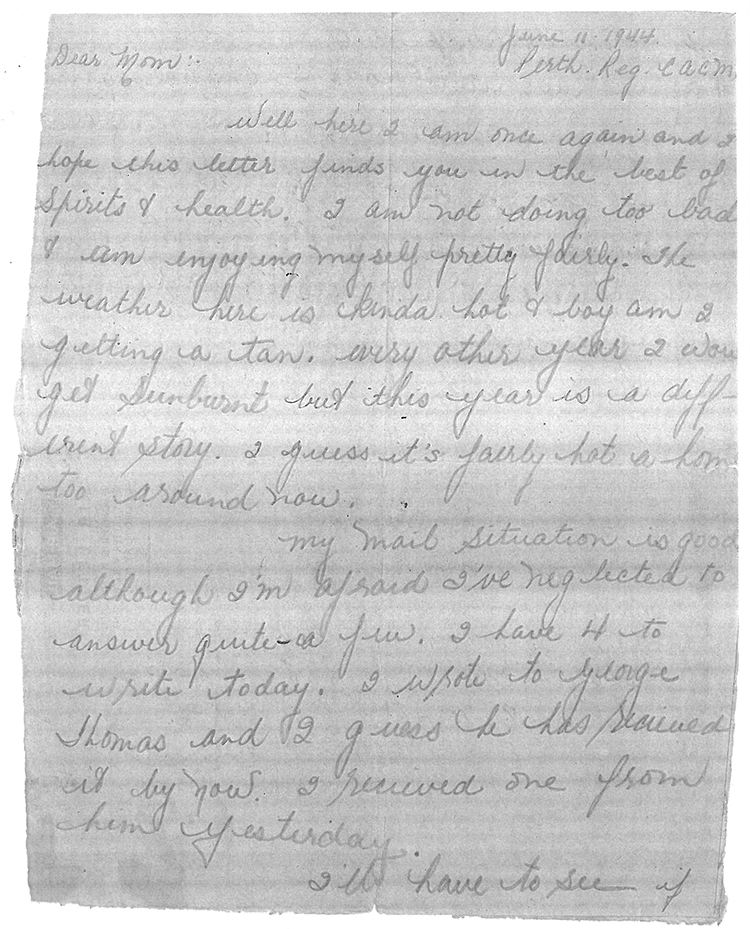 June 11. 1944
Dear Mom:-
Perth. Reg. C A C M
Well here I am once again and I
hope this letter finds you in the best of
Spirits & health. I am not doing too bad
& am enjoying myself pretty fairly. The
weather here is kinda hot & boy am I
getting a tan. every other year I wou
get Sunburnt but this year is a diff-
erent story. I guess it's fairly hot a hom
too around now.
my mail situation is good
although I'm afraid I've neglected to
answer quite-a few. I have 4 to
write today. I wrote to George
Thomas and I guess he has recieved
it by now. I recieved one from
him yesterday.
I'll have to see if